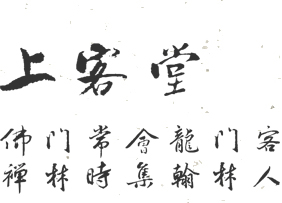 上客堂
佛門常會龍門客
禪林時集翰林人